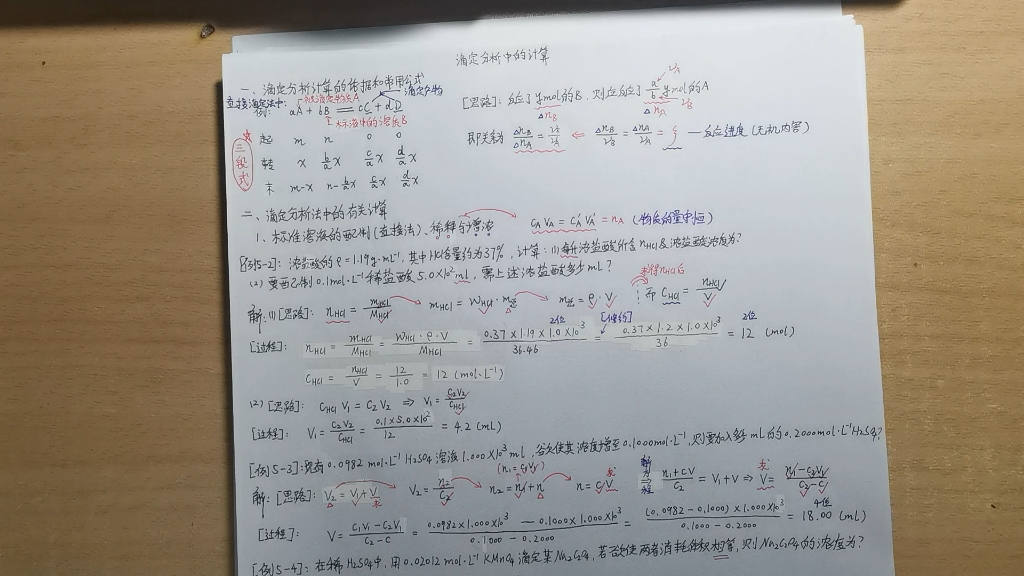 滴定分析中的计算
一、滴定分析计算的依据和常用公式
直接滴定法中: 被滴定物质A 滴定产物
例: aA + bB ══ cC + dD
标准溶液中的溶质B
三段式
起 m n 0 0
转 x b/a x c/a x d/a x
末 m-x n-b/a x c/a x d/a x
[思路]: 反应了 y mol的B, 则应反应了 a/b y mol的A
ΔnB ΔnA νA νB
即关系为 ΔnB/ΔnA = νB/νA ⇐ ΔnB/νB = ΔnA/νA = ξ — 反应进度 (无机内容)
二、滴定分析法中的有关计算
1、标准溶液的配制(直接法)、稀释与增浓 cA VA = cA' VA' = nA (物质的量守恒)
[例5-2]: 浓盐酸的 ρ = 1.19g·mL⁻¹, 其中HCl含量约为37%, 计算: (1) 每升浓盐酸所含 nHCl & 浓盐酸浓度为?
(2) 要配制0.1mol·L⁻¹稀盐酸 5.0×10²mL, 需上述浓盐酸多少mL?
解: (1) [思路]: nHCl = mHCl/MHCl mHCl = WHCl·m总 m总 = ρ·V 求得nHCl后 而 CHCl = nHCl/V
[过程]: nHCl = mHCl/MHCl = WHCl·ρ·V/MHCl = 0.37×1.19×1.0×10³/36.46 = 0.37×1.2×1.0×10³/36 = 12 (mol)
2位 [修约] 2位
CHCl = nHCl/V = 12/1.0 = 12 (mol·L⁻¹)
(2) [思路]: CHCl V1 = C2V2 ⇒ V1 = C2V2/CHCl
[过程]: V1 = C2V2/CHCl = 0.1×5.0×10²/12 = 4.2 (mL)
[例5-3]: 现有0.0982 mol·L⁻¹ H2SO4溶液 1.000×10³ mL, 欲使其浓度增至0.1000mol·L⁻¹, 则要加入多少mL的0.2000mol·L⁻¹H2SO4?
(n1=c1V1)
解: [思路]: V2 = V1+V V2 = n2/C2 n2 = n1+n n = cV 解方程 n1+cV/C2 = V1+V ⇒ V = n1-C2V1/C2-C
[过程]: V = C1V1-C2V1/C2-C = 0.0982×1.000×10³ — 0.1000×1.000×10³/0.1000-0.2000 = (0.0982-0.1000)×1.000×10³/0.1000-0.2000 = 18.00 (mL)
4位
[例5-4]: 在稀H2SO4中, 用0.02012 mol·L⁻¹ KMnO4滴定某Na2C2O4, 若欲使两者消耗体积相等, 则Na2C2O4的浓度为?